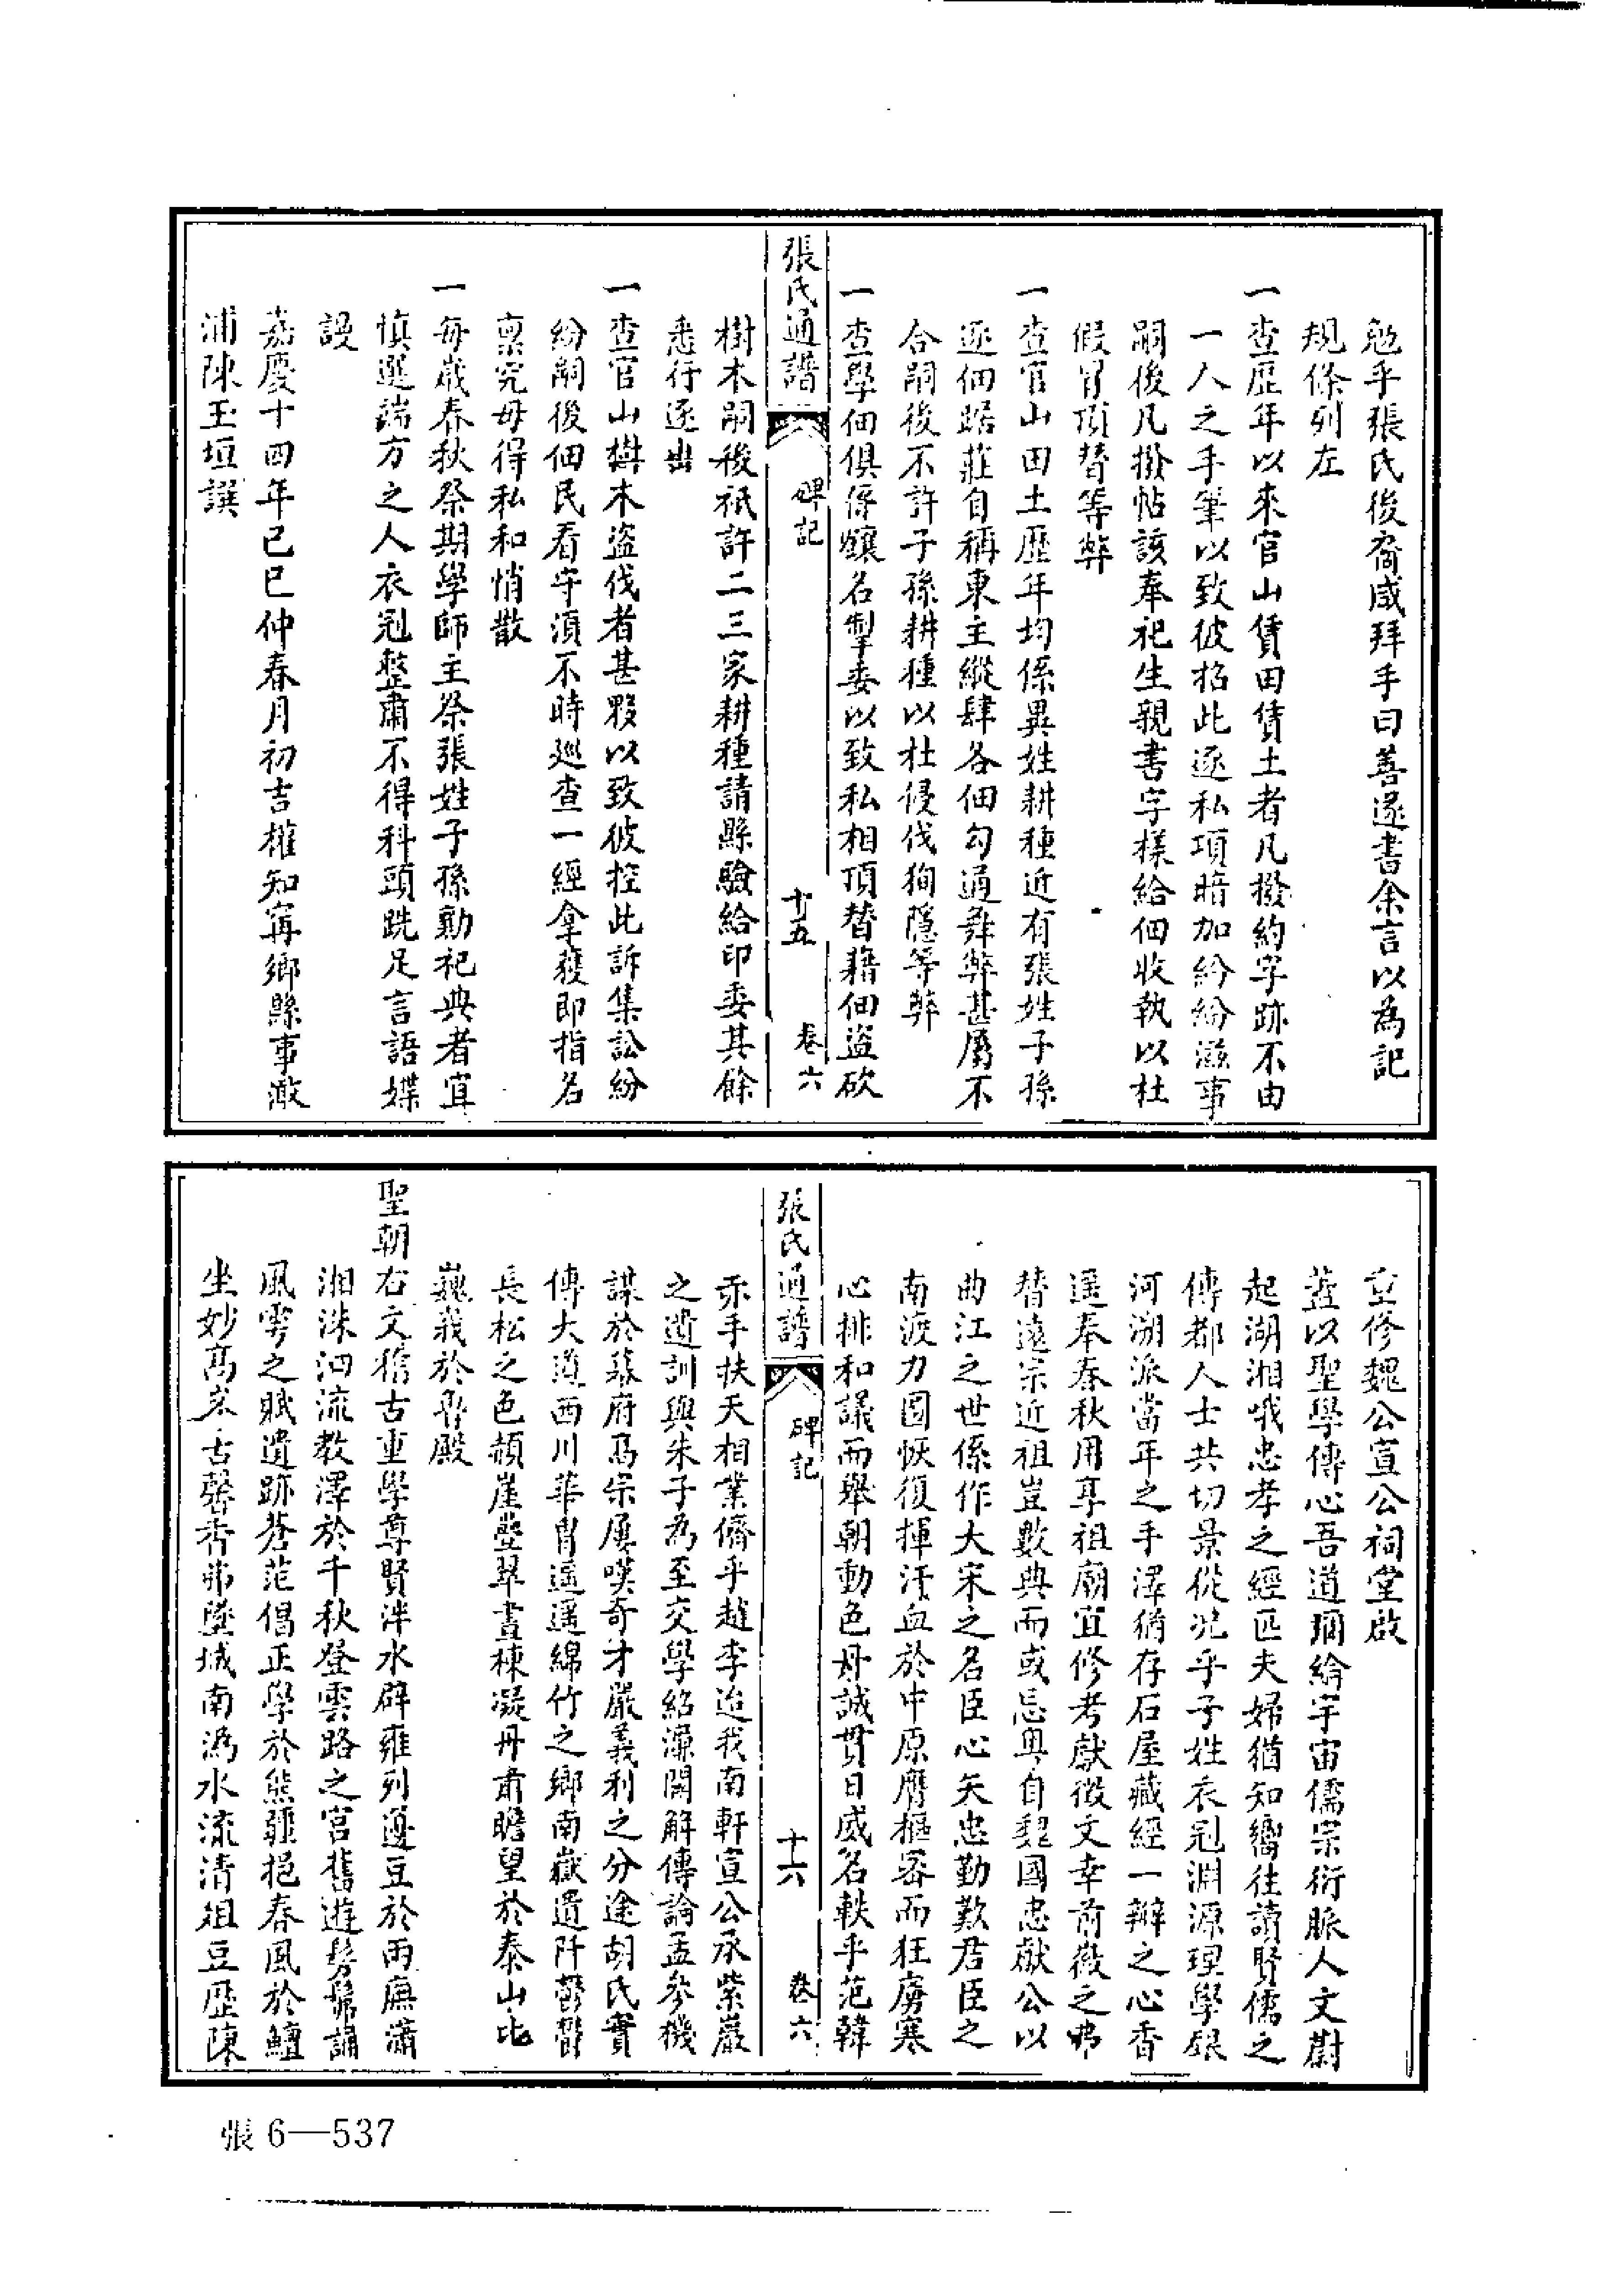 勉乎張氏後裔咸拜手曰善遂書余言以為記
規條列左
一查歷年以來官山賃田賃土者凡撥約字跡不由
一人之手筆以致彼招此逐私項暗加紛紛滋事
嗣後凡撥帖該奉祀生親書字樣給佃收執以杜
假冒頂替等弊
一查官山田土歷年均係異姓耕種近有張姓子孫
逐佃踞莊自稱東主縱肆各佃勾通舞弊甚屬不
合嗣後不許子孫耕種以杜侵伐徇隱等弊
一查學佃俱係釀名掣委以致私相頂替藉佃盜砍
張氏通譜
碑記
十五
卷六
樹木嗣後祇許二三家耕種請縣驗給印委其餘
悉行逐出
一查官山樹木盜伐者甚夥以致彼控此訴集訟紛
紛嗣後佃民看守須不時巡查一經拿獲即指名
稟究毋得私和悄散
一每歲春秋祭期學師主祭張姓子孫勷祀典者宜
慎選端方之人衣冠整肅不得科頭跣足言語媟
謾
嘉慶十四年己巳仲春月初吉權知甯鄉縣事漵
浦陳玉垣譔
重修魏公宣公祠堂啟
蓋以聖學傳心吾道彌綸宇宙儒宗衍脈人文蔚
起湖湘哦忠孝之經匹夫婦猶知嚮往讀賢儒之
傳都人士共切景從况乎子姓衣冠淵源理學銀
河溯派當年之手澤猶存石屋藏經一瓣之心香
遥奉春秋用享祖廟宜修考獻徵文幸前徽之弗
替遠宗近祖豈數典而或忘粤自魏國忠獻公以
曲江之世係作大宋之名臣心矢忠勤歎君臣之
南渡力圖恢復揮汗血於中原膺樞密而狂虜寒
心排和議而舉朝動色丹誠貫日威名軼乎范韓
張氏通譜
碑記
十六
卷六
赤手扶天相業儕乎趙李迨我南軒宣公承紫巖
之遺訓與朱子為至交學紹濂關解傳論孟參機
謀於幕府高宗屢嘆奇才嚴義利之分途胡氏實
傳大道西川華胄遥遥綿竹之鄉南嶽遺阡鬱鬱
長松之色頳崖疊翠晝棟凝丹肅瞻望於泰山比
巍峩於魯殿
聖朝右文稽古重學尊賢泮水辟雍列籩豆於兩廡瀟
湘洙泗流教澤於千秋登雲路之宮舊遊髣髴誦
風雩之賦遺跡蒼茫倡正學於熊疆挹春風於鱣
坐妙高峯古馨香弗墜城南溈水流清俎豆歷陳
張 6—537